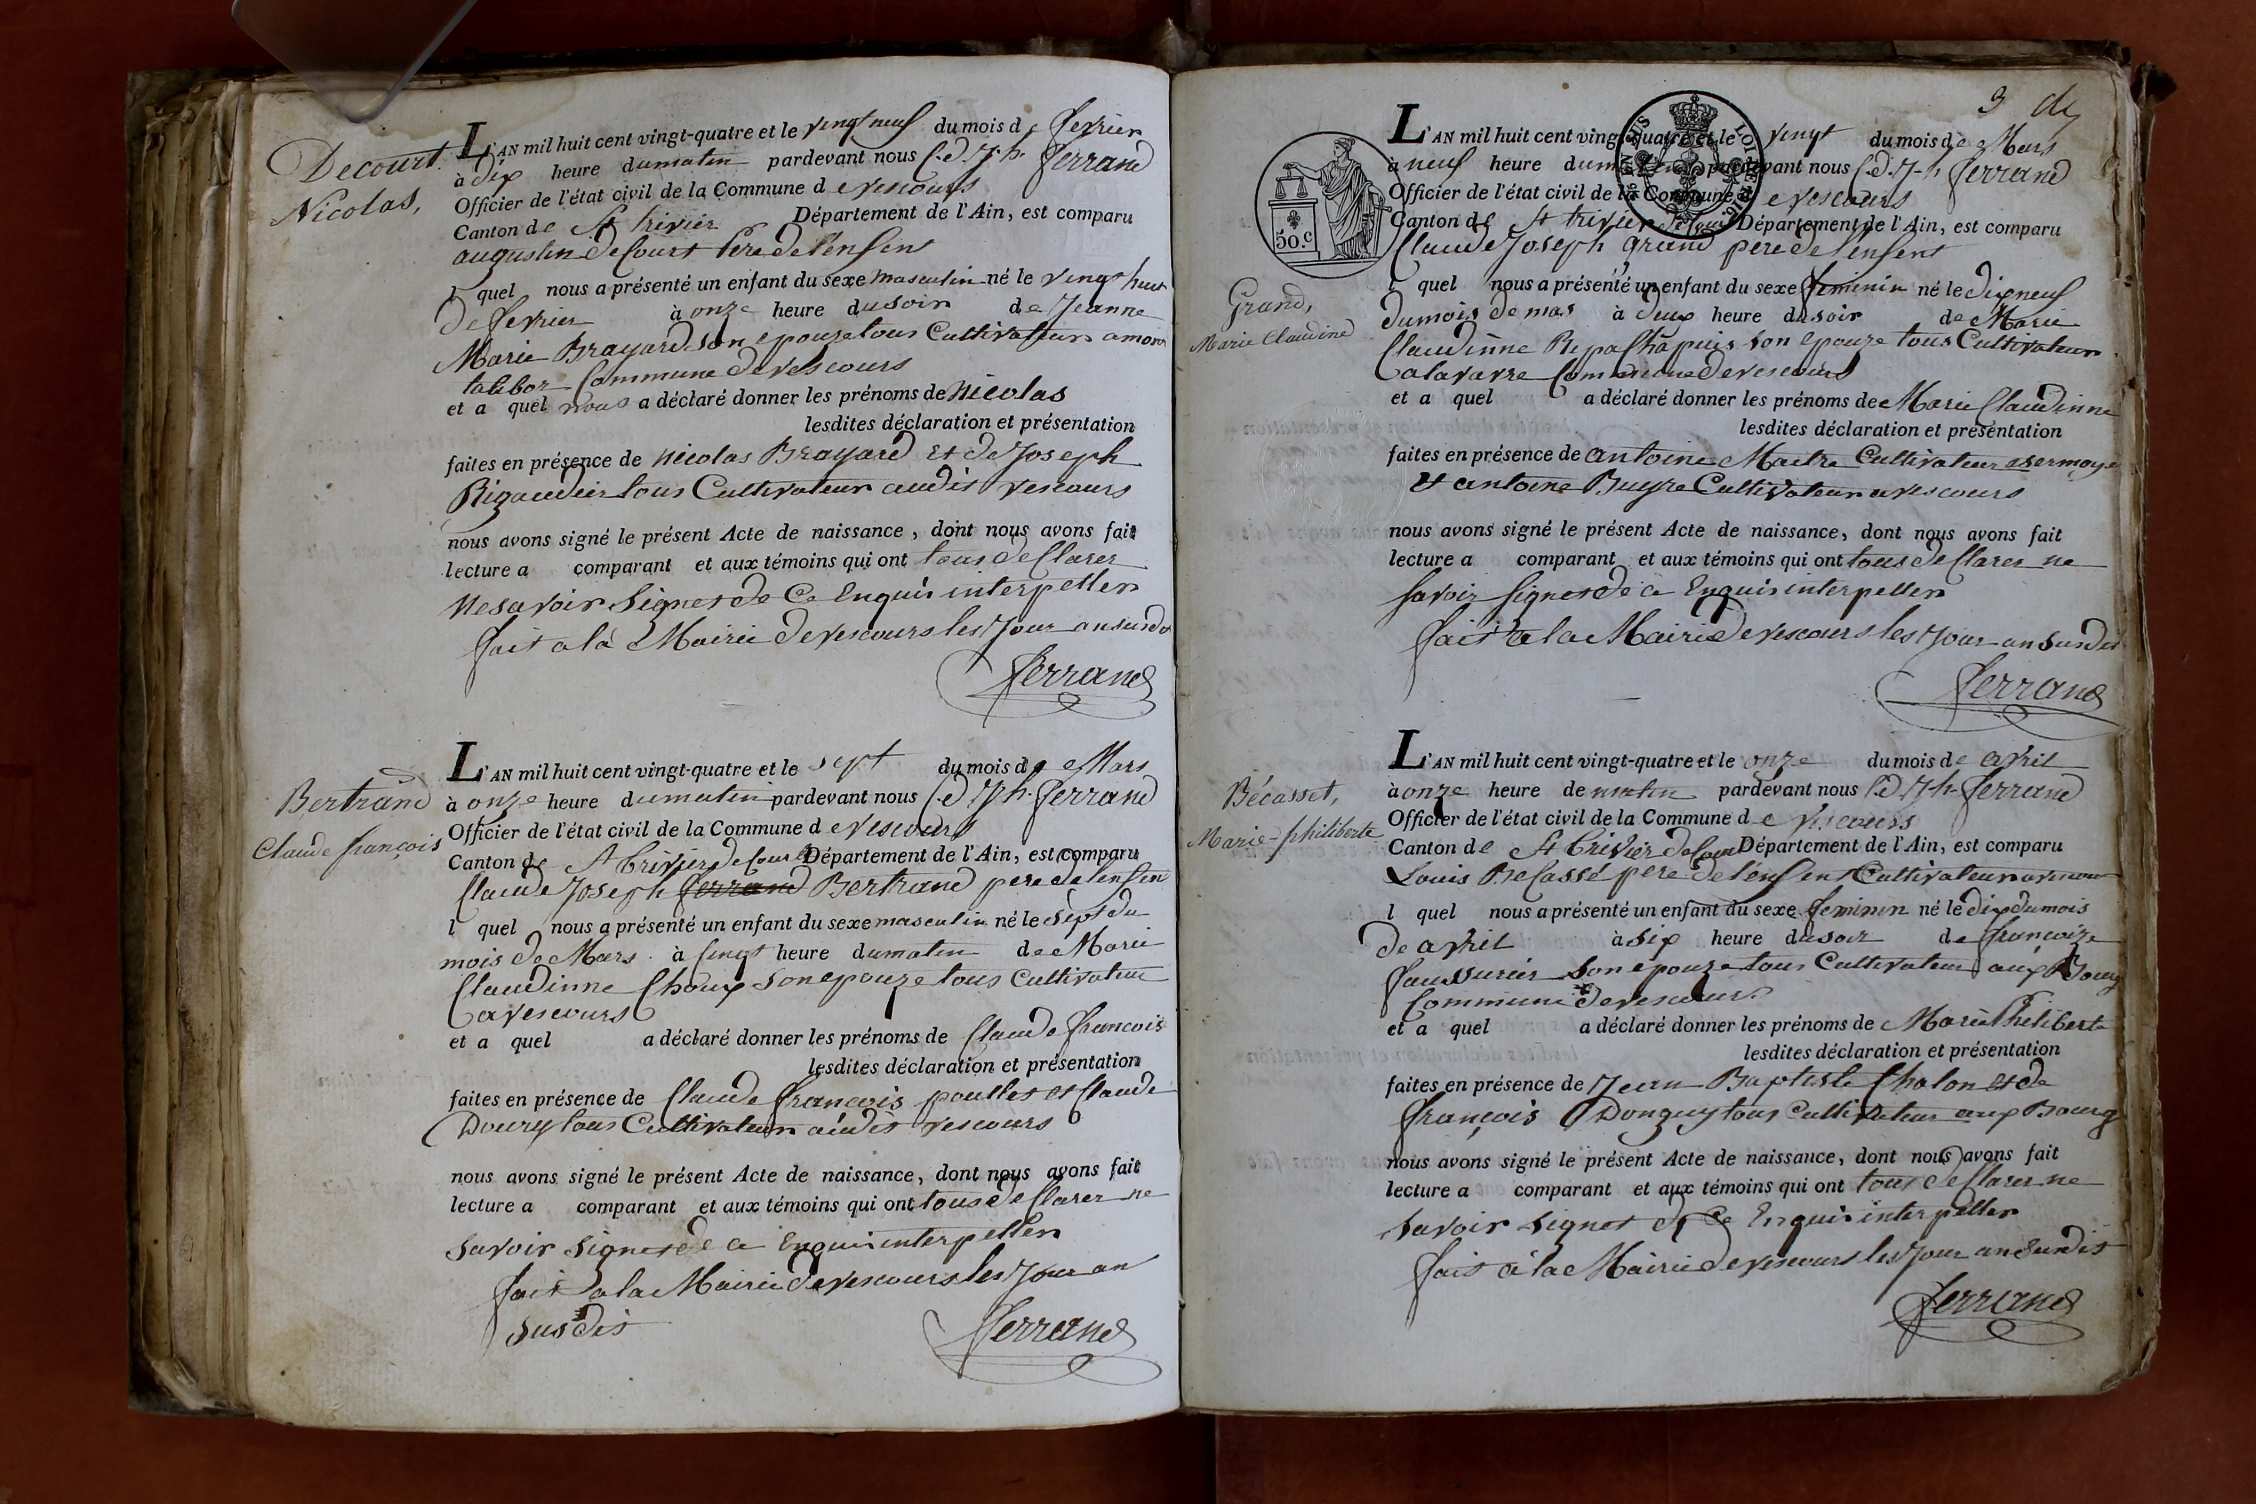 Decourt
Nicolas,
L'AN mil huit cent vingt-quatre et le vingt neuf du mois de fevrier
à dix heure du matin pardevant nous C.d. Jph. ferrand
Officier de l'état civil de la Commune de vescours
Canton de St trivier Département de l'Ain, est comparu
augustin decourt Pere de lenfent
l quel nous a présenté un enfant du sexe masculin né le vingt huit
de fevrier à onze heure du soir de Jeanne
Marie Brayard son epouze tous Cultivateurs a
Commune de vescours
et a quel nous a déclaré donner les prénoms de Nicolas
lesdites déclaration et présentation
faites en présence de nicolas Brayard et de Joseph
Rigaudier tous Cultivateur audit vescours
nous avons signé le présent Acte de naissance, dont nous avons fait
lecture a comparant et aux témoins qui ont tous declarer
ne savoir signer de ce Enquis interpeller
fait a la Mairie de vescours les Jour an susdit
ferrand
Bertrand
Claude françois
L'AN mil huit cent vingt-quatre et le sept du mois de Mars
à onze heure du matin pardevant nous C.d Jph. ferrand
Officier de l'état civil de la Commune de vescours
Canton de St trivier de Cour Département de l'Ain, est comparu
Claude Joseph ferrand Bertrand pere de lenfen
l quel nous a présenté un enfant du sexe masculin né le sept du
mois de Mars à heure du matin de Marie
Claudinne Choux son epouze tous Cultivateur
a vescours
et a quel a déclaré donner les prénoms de Claude francois
lesdites déclaration et présentation
faites en présence de Claude francois poullet et Claude
Dourey tous Cultivateur audit vescours
nous avons signé le présent Acte de naissance, dont nous avons fait
lecture a comparant et aux témoins qui ont tous declarer ne
savoir signer de ce Enquis interpeller
fait a la Mairie de vescours les Jour an
susdit
ferrand
3
50.c
LOI DE 1816
Grand,
Marie Claudine
L'AN mil huit cent vingt-quatre et le vingt du mois de Mars
à neuf heure du matin pardevant nous C.d. J-h ferrand
Officier de l'état civil de la Commune de vescours
Canton de St trivier de cour Département de l'Ain, est comparu
Claude Joseph grand pere de lenfent
l quel nous a présenté un enfant du sexe feminin né le dix neuf
du mois de mars à deux heure du soir de Marie
Claudinne son epouze tous Cultivateur
Commune de vescours
et a quel a déclaré donner les prénoms de Marie Claudinne
lesdites déclaration et présentation
faites en présence de antoine Maitre Cultivateur a sermoyer
et antoine Buyze Cultivateur a vescours
nous avons signé le présent Acte de naissance, dont nous avons fait
lecture a comparant et aux témoins qui ont tous declarer ne
savoir signer de ce Enquis interpeller
fait a la Mairie de vescours les Jour an susdit
ferrand
Bécasset,
Marie-philiberte
L'AN mil huit cent vingt-quatre et le onze du mois de avril
à onze heure de matin pardevant nous C.d. J-h ferrand
Officier de l'état civil de la Commune de vescours
Canton de St trivier de cour Département de l'Ain, est comparu
Louis Becassé pere de lenfent Cultivateur a vescour
l quel nous a présenté un enfant du sexe feminin né le dix du mois
de avril à six heure du soir de francoize
son epouze tous Cultivateur aux Bourg
Commune de vescours
et a quel a déclaré donner les prénoms de Marie Philiberte
lesdites déclaration et présentation
faites en présence de Jean Baptiste Chalon et de
françois Donguy tous Cultivateur aux Bourg
nous avons signé le présent Acte de naissance, dont nous avons fait
lecture a comparant et aux témoins qui ont tous declarer ne
savoir signer de ce Enquis interpeller
fait a la Mairie de vescours les Jour an susdit
ferrand